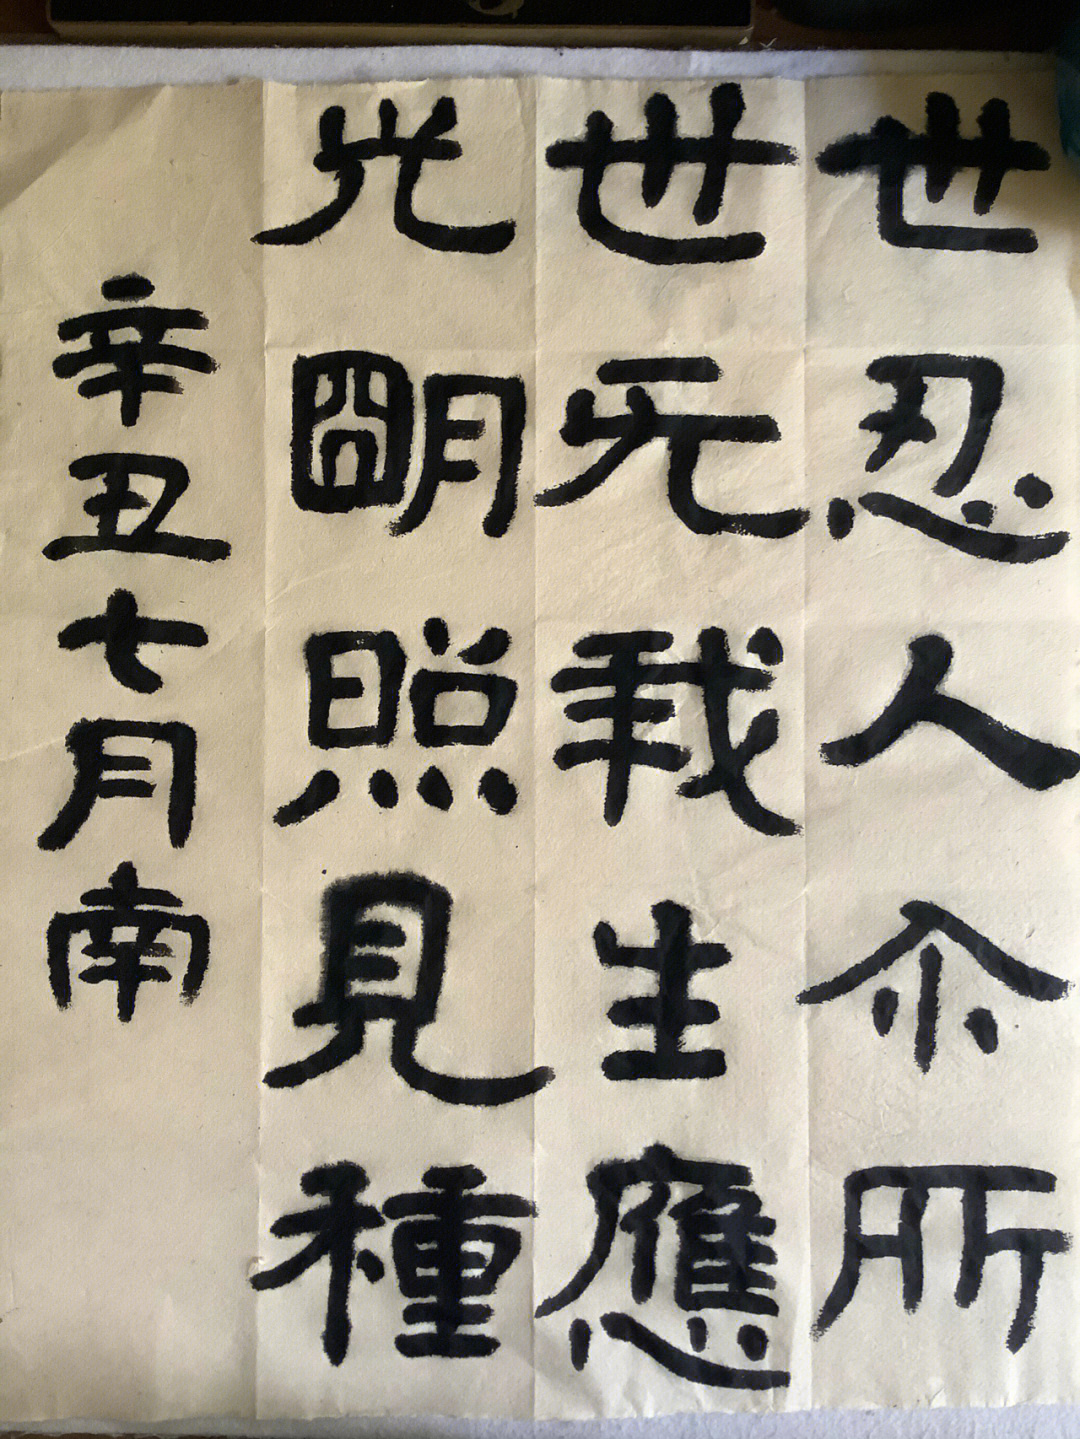 世忍人尒所
世无我生應
光明照見種
辛丑七月南